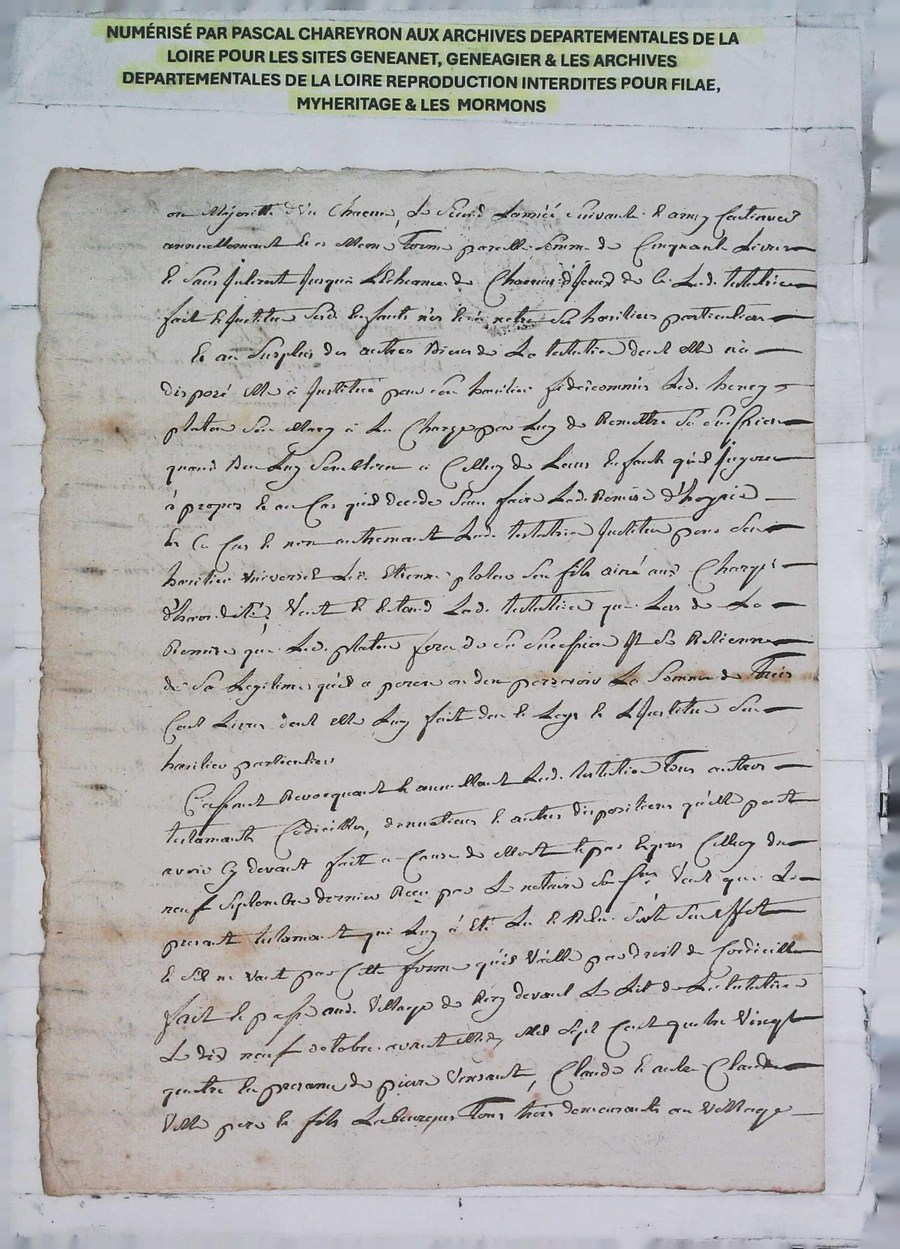 NUMÉRISÉ PAR PASCAL CHAREYRON AUX ARCHIVES DEPARTEMENTALES DE LA
LOIRE POUR LES SITES GENEANET, GENEAGIER & LES ARCHIVES
DEPARTEMENTALES DE LA LOIRE REPRODUCTION INTERDITES POUR FILAE,
MYHERITAGE & LES MORMONS
ou Majorité d'un Chacun, Le Second L'année suivante & ainsy Continuer
annuellement de meme Terme pareille somme de Cinquante Livres
& sans Interest jusqu'a de Chacun de Lad. testatrice
fait & Institue sesd. Enfants nés & à naitre ses heritiers particuliers
Et au Surplus des autres Biens de La testatrice dont elle n'a
disposé elle a Institué pour son heritier fideicommis Led.
platon son Mary à La Charge par Luy de Remettre Sa Succession
quand Bon Luy Semblera a Celluy de Leurs Enfants qu'il jugera
à propos & au Cas qu'il decede sans faire Lad. Remise d'hoyrie
En Ce Cas & non autrement Lad. testatrice Institue pour son
heritier universel Led. Etienne platon son fils ainé aux Charges
d'heredité, Veut & Entend Lad. testatrice que Lors de La
Remise que Led. platon fera de Sa Succession Il Se Retienne
de Sa Legitime La Somme de Trois
Cent Livres dont elle Luy fait don & Legs & L'Institue Son
heritier particulier
Cassant Revoquant & annullant Lad. testatrice Tous autres
testaments Codicilles, donnations & autres dispositions qu'elle peut
avoir Cy devant fait a Cause de Mort Celluy du
neuf Septembre dernier Reçu par Le notaire Veut que Le
present testament qui Luy à Eté Lu & Relu Sorte Son Effet
& S'il ne Vaut par Cette forme qu'il Vaille par droit de Codicille
fait & passé aud. Village de devant Le Lit de La testatrice
Le dix neuf octobre avant Midy Mil Sept Cent quatre Vingt
quatre En presance de pierre Claude & autre Claude
Ville pere & fils Laboureurs Tous trois demeurants au Village